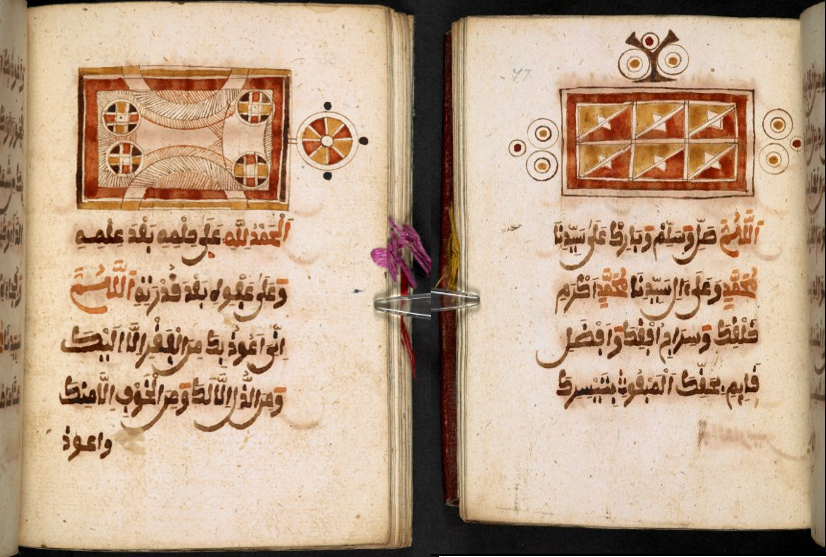 اللهم صل وسلم وبارك على سيدنا
محمد وعلى ءال سيدنا محمد اكرم
خلقك وسراج افقك وافضل
قايم بحقك المبعوث بتيسيرك
47
الحمد لله على حلمه بعد علمه
وعلى عفوه بعد قدرته اللهم
انى اعوذ بك من الفقر الا اليك
ومن الذل الا لك ومن الخوف الا منك
واعوذ